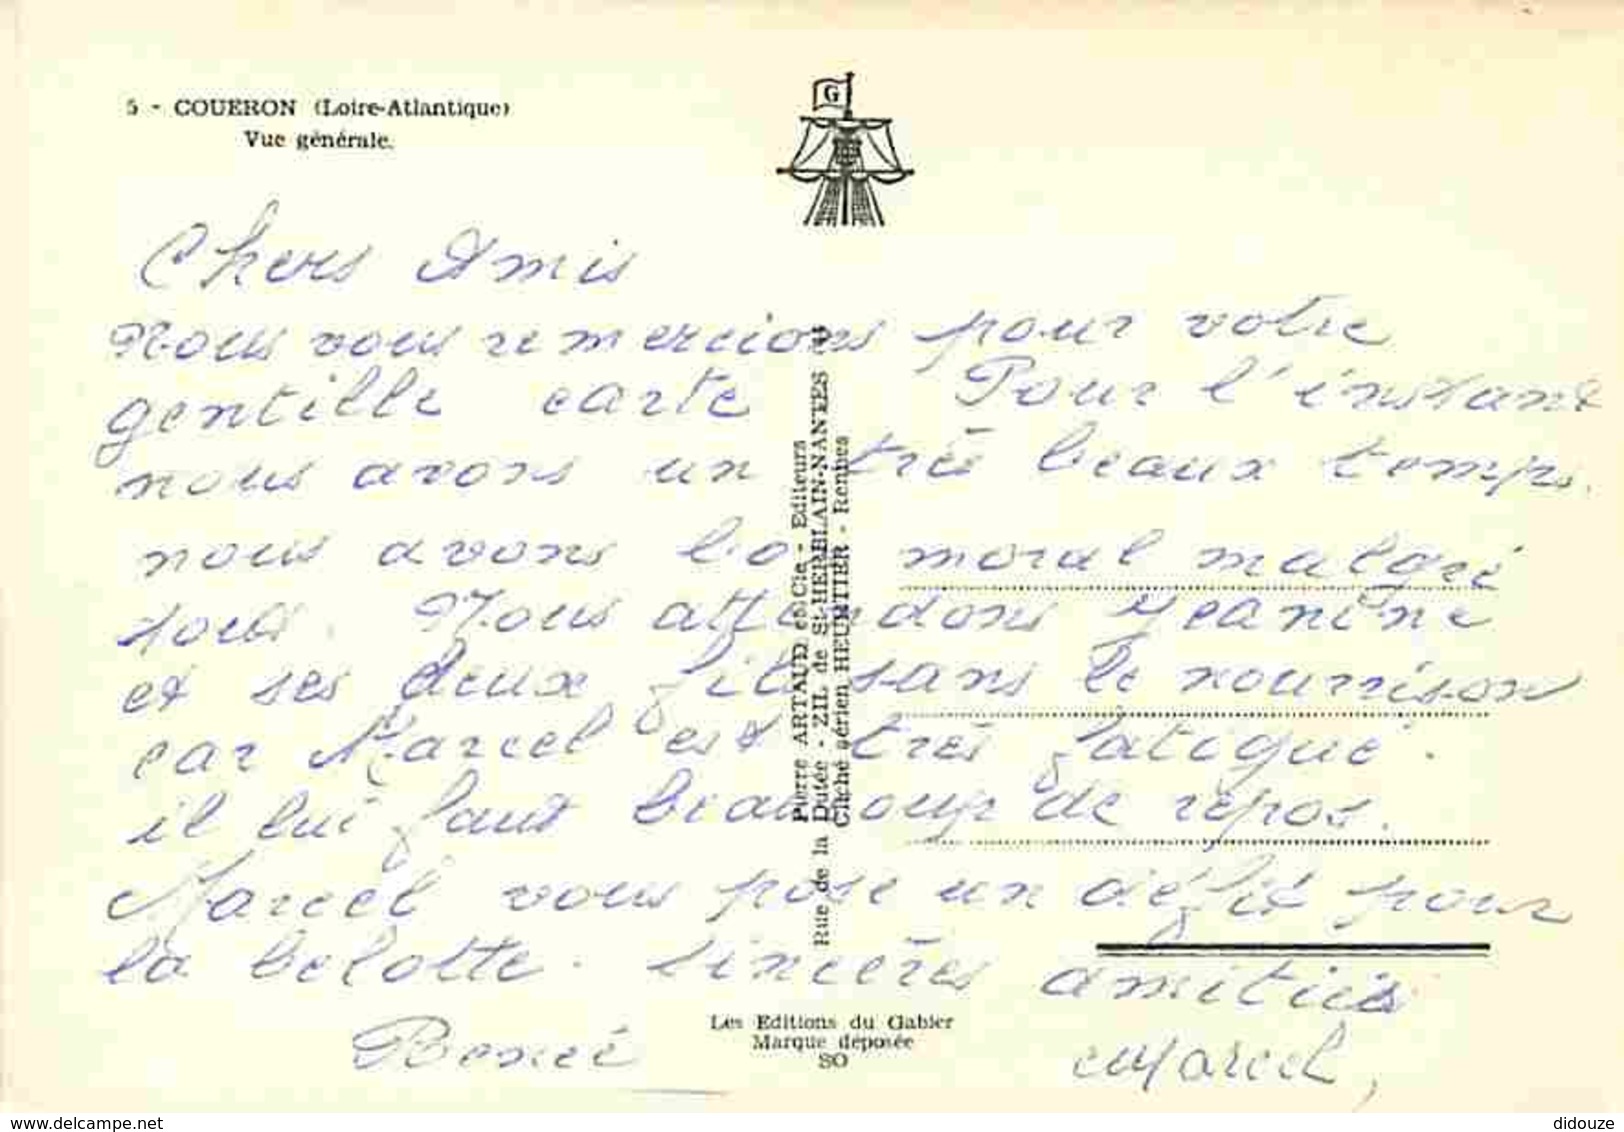 5 - COUERON (Loire-Atlantique)
Vue générale.
G
Chers Amis
Nous vous remercions pour votre
gentille carte Pour l'instant
nous avons un très beaux temps.
nous avons bo moral malgré
tous. Nous attendons Jeanine
et ses deux fils sans le nourrison
car Marcel est très fatigué.
il lui faut beaucoup de repos.
Marcel vous pose un défit pour
la belotte. Sincères amitiés
Marcel,
Pierre ARTAUD et Cie - Editeurs
Rue de la Dutée - ZIL de St-HERBLAIN-NANTES
Cliché aérien HEURTIER - Rennes
Les Editions du Gabier
Marque déposée
SO
didouze
www.delcampe.net